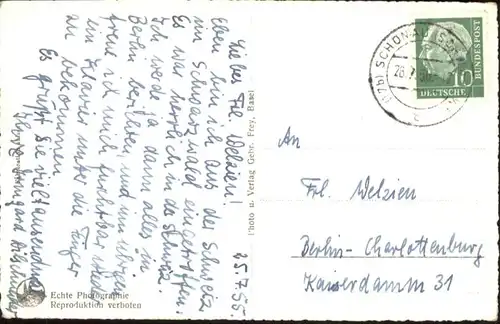 Liebes Frl. Welzien!
Eben bin ich aus der Schweiz
im Schwarzwald eingetroffen.
Es war herrlich in der Schweiz.
Ich werde ja dann alles in
Berlin berichten, und im übrigen
freue ich mich furchtbar, wieder
ein Klavier unter die Finger
zu bekommen.
Es grüßt Sie vieltausendmal
Ihre Irmgard
25.7.55
Photo u. Verlag Gebr. Frey, Basel
Echte Photographie
Reproduktion verboten
(17b) SCHÖNAU
10
DEUTSCHE
BUNDESPOST
An
Frl. Welzien
Berlin-Charlottenburg
Kaiserdamm 31